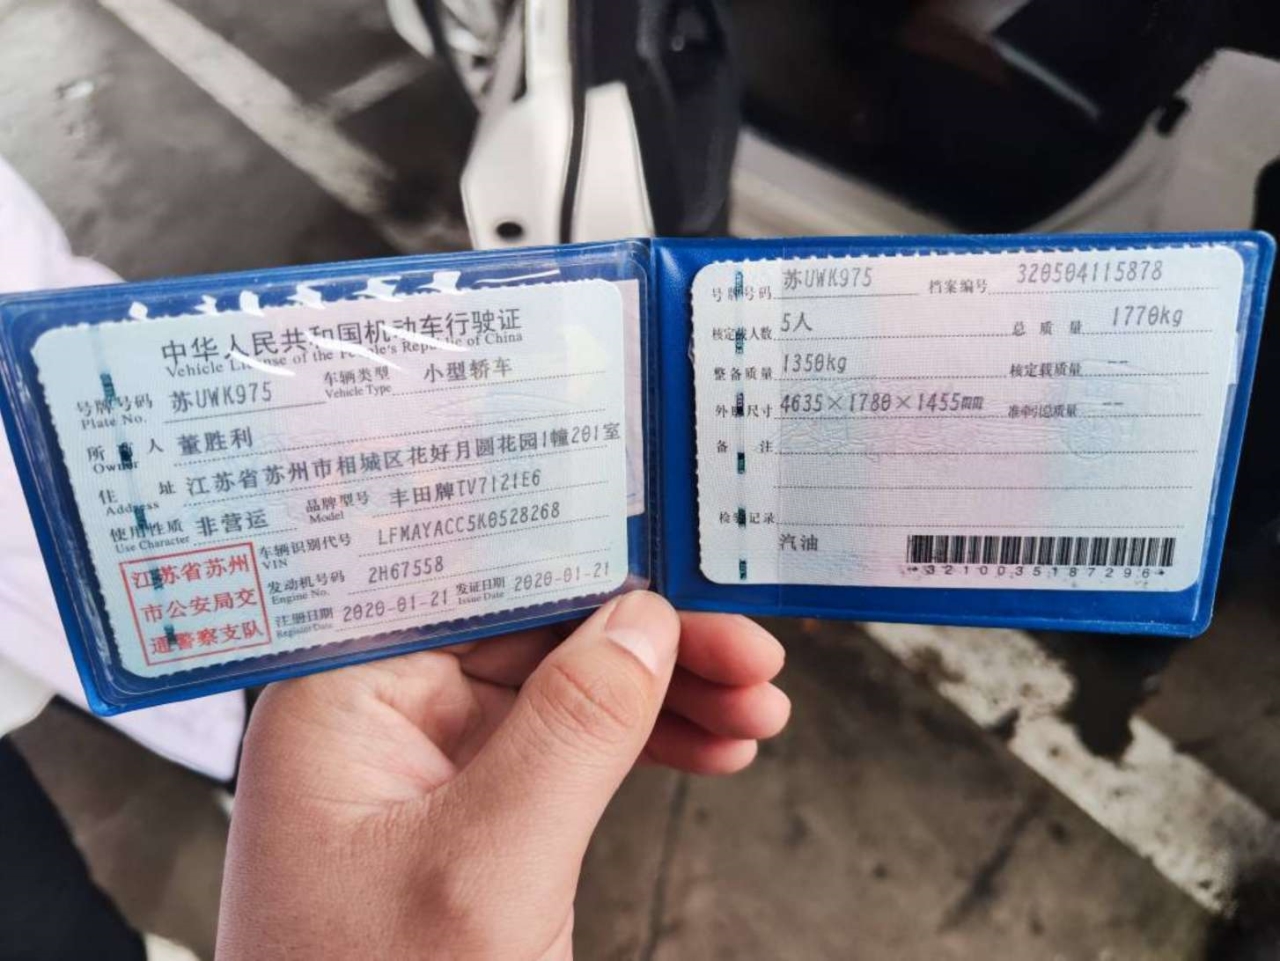 中华人民共和国机动车行驶证
Vehicle License of the People's Republic of China
号牌号码 苏UWK975 车辆类型 小型轿车
Plate No. Vehicle Type
所 人 董胜利
Owner
住 址 江苏省苏州市相城区花好月圆花园1幢201室
Address
使用性质 非营运 品牌型号 丰田牌TV7121E6
Use Character Model
车辆识别代号 LFMAYACC5K0528268
VIN
发动机号码 2H67558
Engine No.
注册日期 2020-01-21 发证日期 2020-01-21
Register Date Issue Date
江苏省苏州
市公安局交
通警察支队
号牌号码 苏UWK975 档案编号 320504115878
核定载人数 5人 总质量 1770kg
整备质量 1350kg 核定载质量 --
外廓尺寸 4635×1780×1455mm 准牵引总质量 --
备 注
检验记录
汽油
*3210035187296*